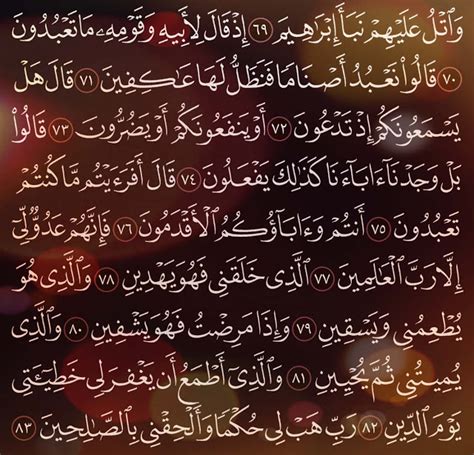 وَٱتۡلُ عَلَيۡهِمۡ نَبَأَ إِبۡرَٰهِيمَ ٦٩ إِذۡ قَالَ لِأَبِيهِ وَقَوۡمِهِۦ مَا تَعۡبُدُونَ
٧٠ قَالُواْ نَعۡبُدُ أَصۡنَامٗا فَنَظَلُّ لَهَا عَٰكِفِينَ ٧١ قَالَ هَلۡ
يَسۡمَعُونَكُمۡ إِذۡ تَدۡعُونَ ٧٢ أَوۡ يَنفَعُونَكُمۡ أَوۡ يَضُرُّونَ ٧٣ قَالُواْ
بَلۡ وَجَدۡنَآ ءَابَآءَنَا كَذَٰلِكَ يَفۡعَلُونَ ٧٤ قَالَ أَفَرَءَيۡتُم مَّا كُنتُمۡ
تَعۡبُدُونَ ٧٥ أَنتُمۡ وَءَابَآؤُكُمُ ٱلۡأَقۡدَمُونَ ٧٦ فَإِنَّهُمۡ عَدُوّٞ لِّيٓ
إِلَّا رَبَّ ٱلۡعَٰلَمِينَ ٧٧ ٱلَّذِي خَلَقَنِي فَهُوَ يَهۡدِينِ ٧٨ وَٱلَّذِي هُوَ
يُطۡعِمُنِي وَيَسۡقِينِ ٧٩ وَإِذَا مَرِضۡتُ فَهُوَ يَشۡفِينِ ٨٠ وَٱلَّذِي
يُمِيتُنِي ثُمَّ يُحۡيِينِ ٨١ وَٱلَّذِيٓ أَطۡمَعُ أَن يَغۡفِرَ لِي خَطِيٓـَٔتِي
يَوۡمَ ٱلدِّينِ ٨٢ رَبِّ هَبۡ لِي حُكۡمٗا وَأَلۡحِقۡنِي بِٱلصَّٰلِحِينَ ٨٣